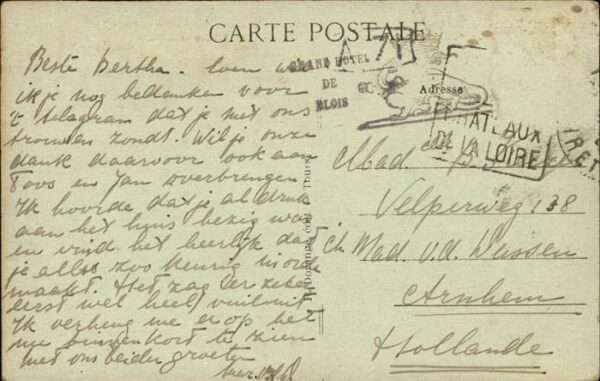 CARTE POSTALE
GRAND HOTEL
DE
BLOIS
Adresse
CHATEAUX
DE LA LOIRE
RET
Beste Bertha. Even
ik je nog bedanken voor
't telegram dat je met ons
trouwen zondt. Wil je onze
dank daarvoor ook aan
Toos en Jan overbrengen
Ik hoorde dat je al druk
aan het huis bezig was
en vind het heerlijk dat
je alles zoo keurig in orde
maakt. Het zag er zeker
eerst wel heel vuil uit.
Ik verheug me er op het
nu binnenkort te zien
met ons beider groeten
Mad
Velperweg 138
Mad. v. d.
Arnhem
Hollande